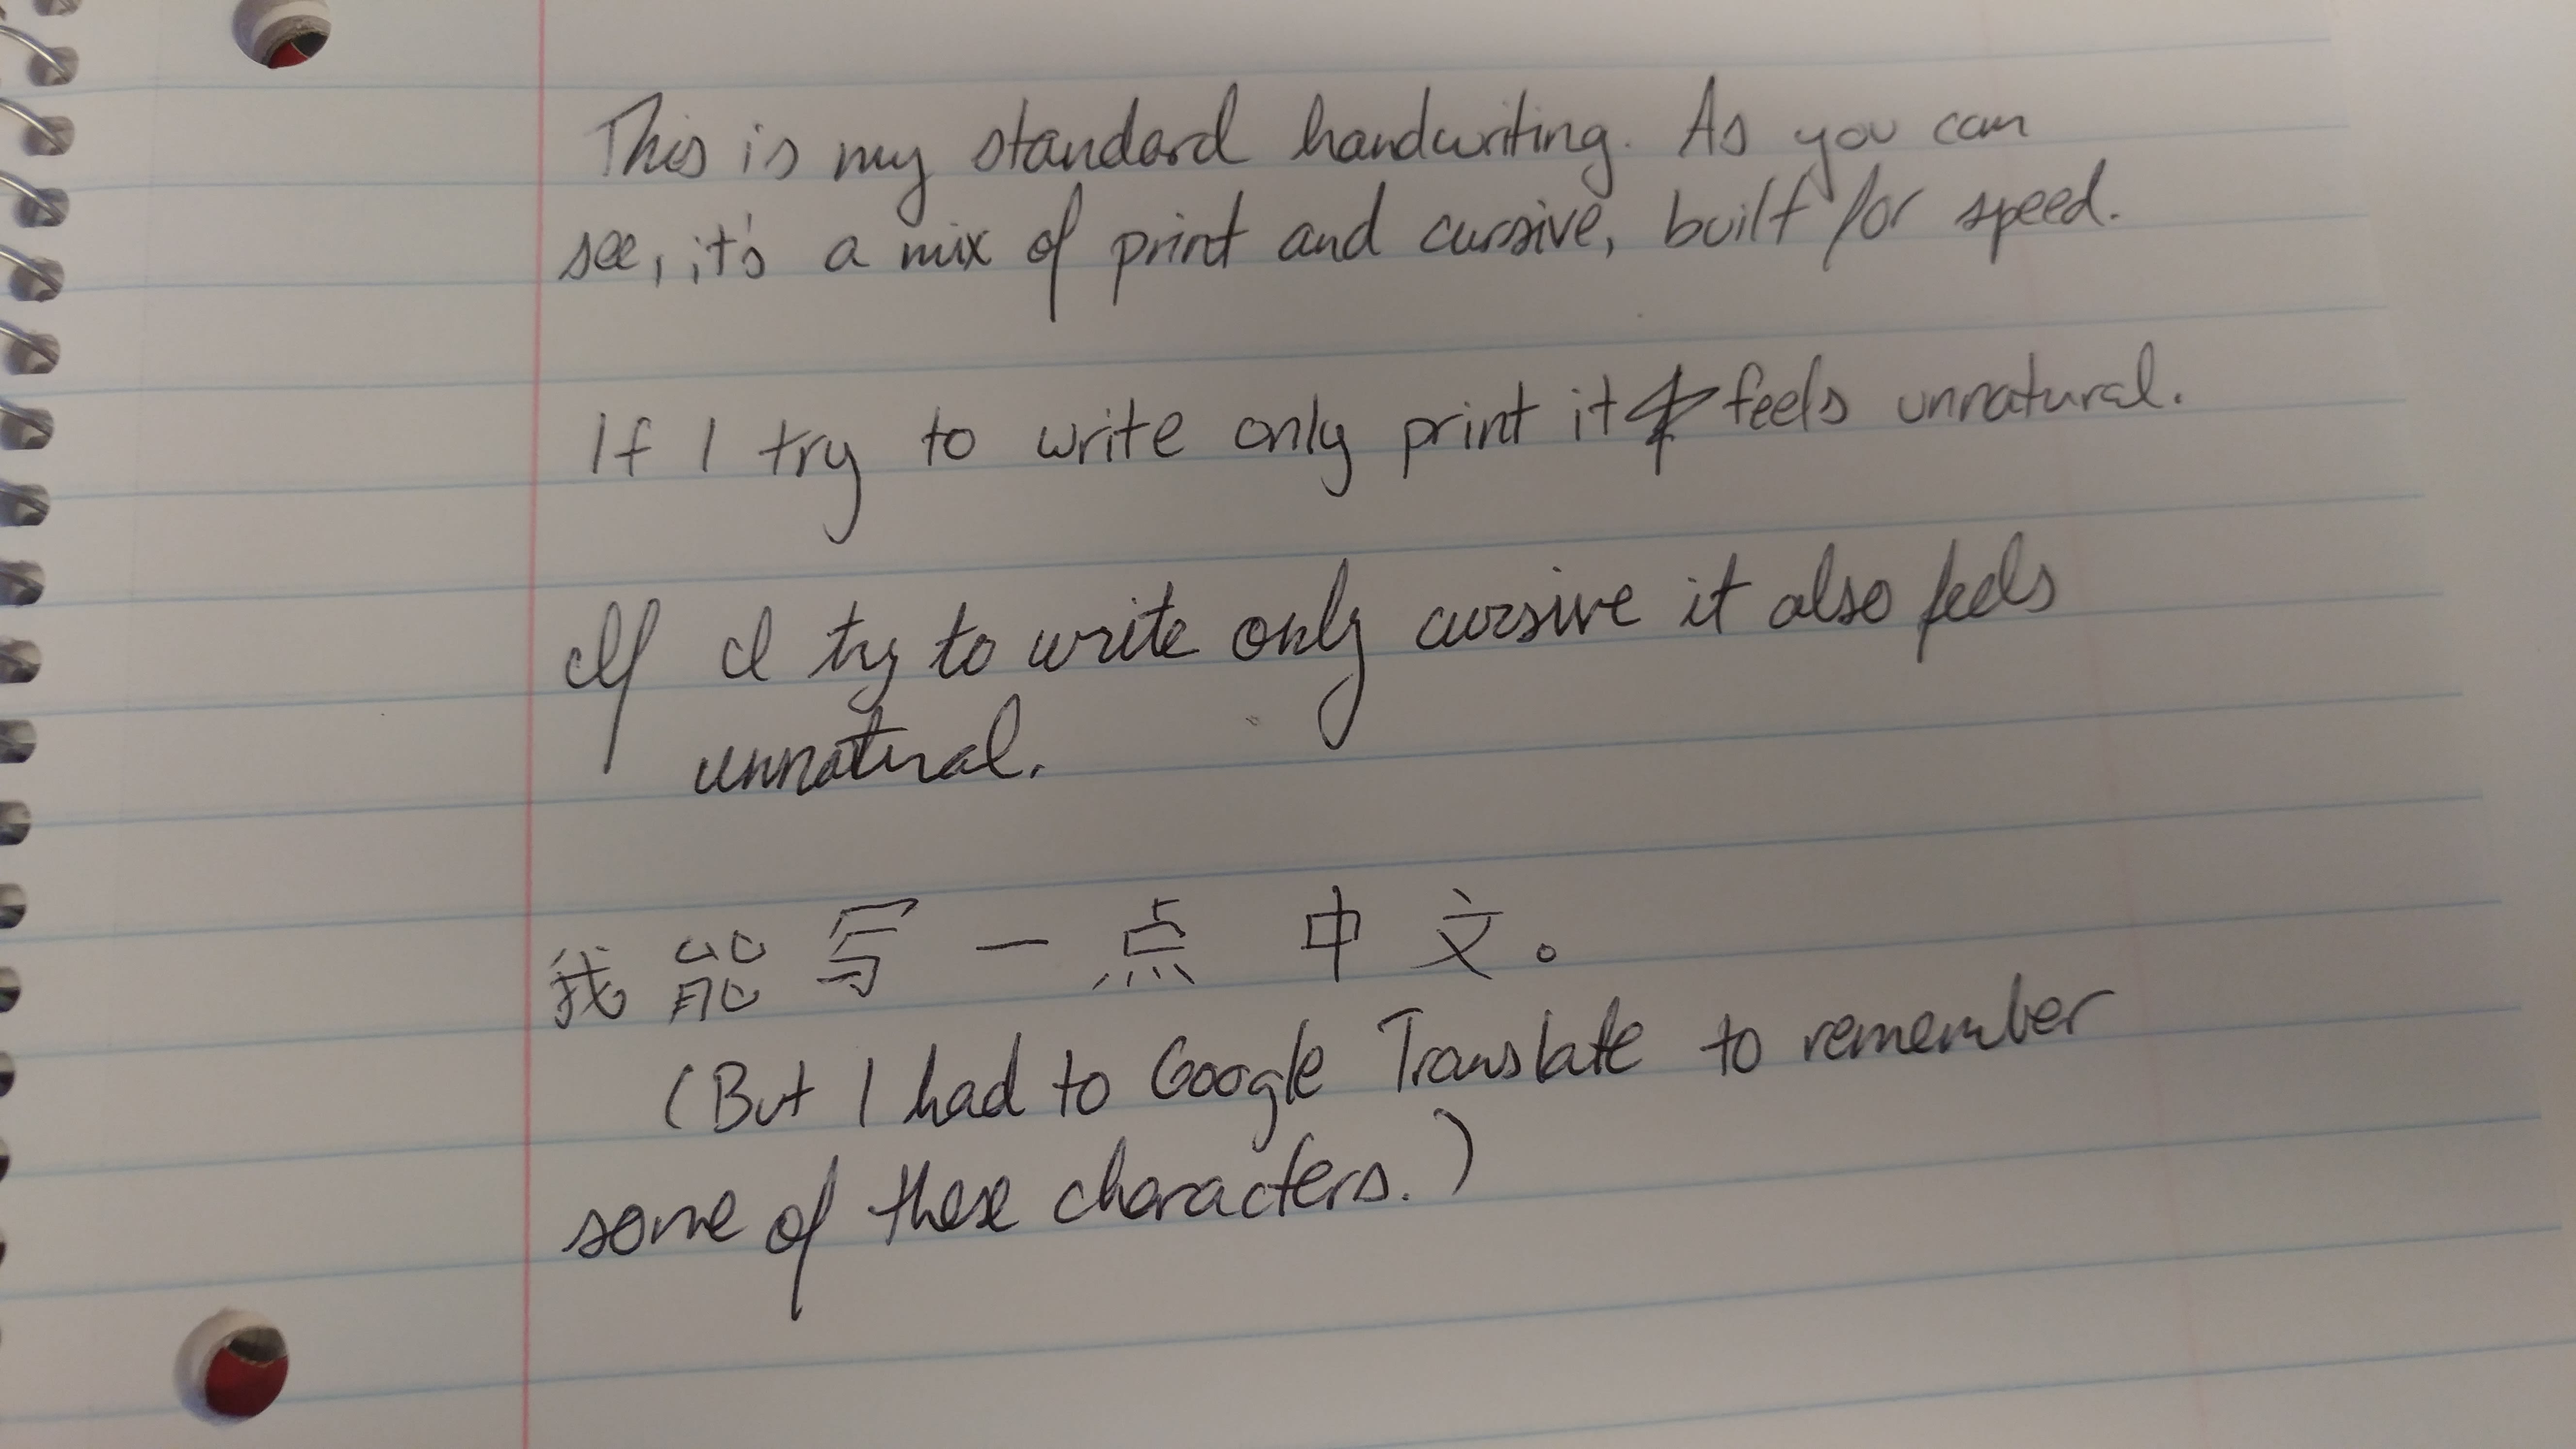 This is my standard handwriting. As you can
see, it's a mix of print and cursive, built for speed.
If I try to write only print it feels unnatural.
If I try to write only cursive it also feels
unnatural.
我能写一点中文。
(But I had to Google Translate to remember
some of these characters.)